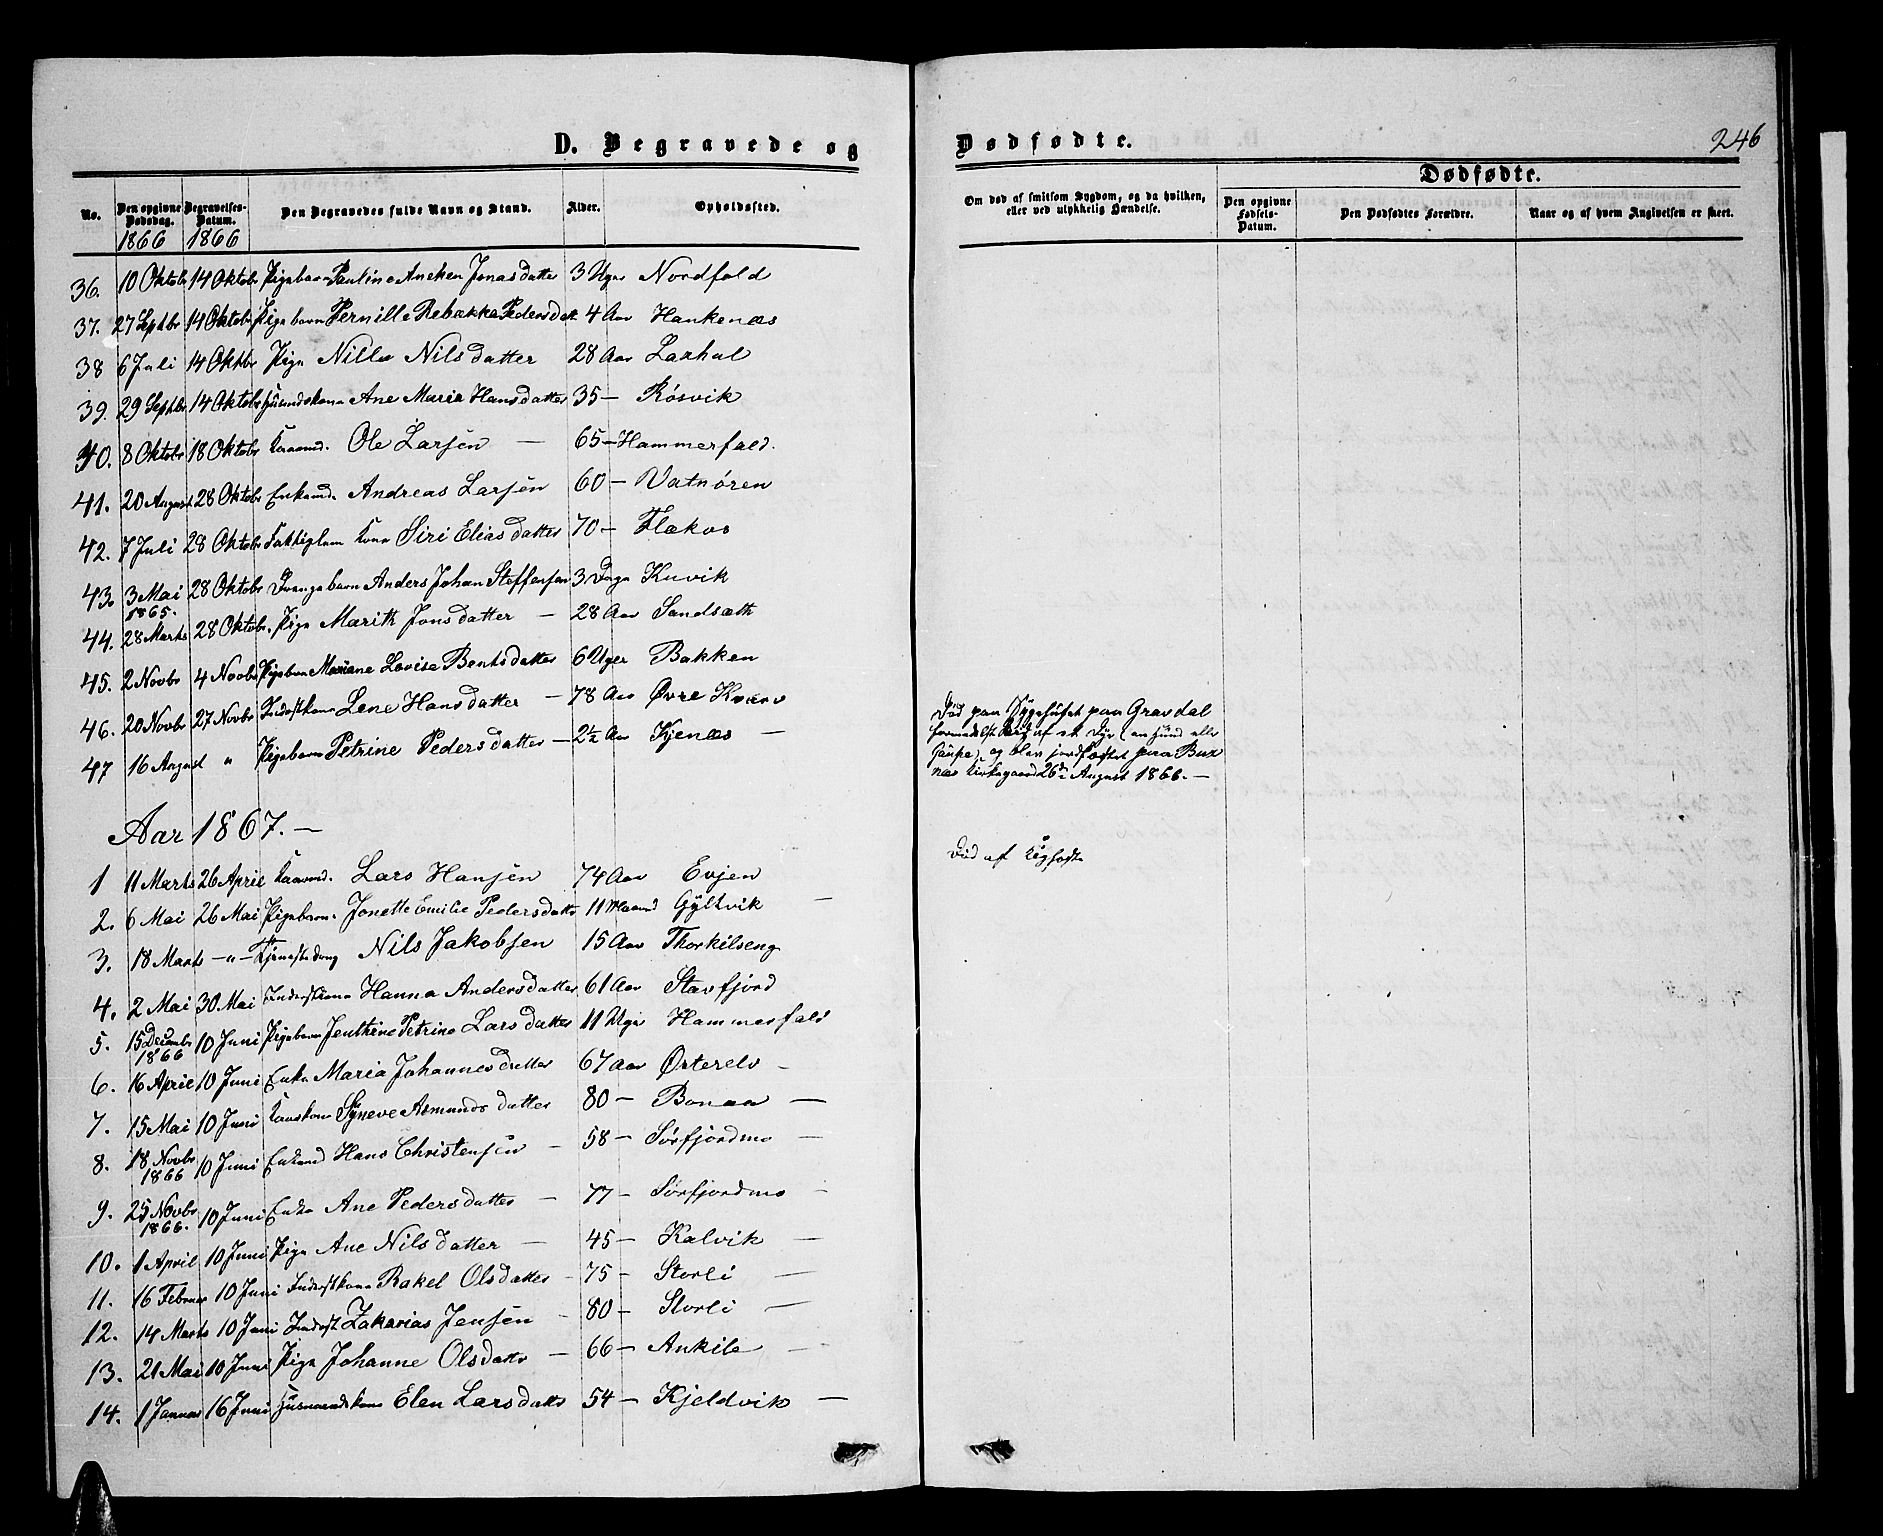 D. Begravede og Dødfødte. 246
No. Den opgivne Dødsdag. 1866 Begravelses-Datum. 1866 Den Begravedes fulde Navn og Stand. Alder. Opholdssted. Om død af smitsom Sygdom, og da hvilken, eller ved ulykkelig Hændelse.
Dødfødte.
Den opgivne Fødsels-Datum. Den Dødfødtes Forældre. Naar og af hvem Angivelsen er skeet.
36. 10 Oktobr 14 Oktobr Pigebarn Pauline Aneken Jonasdatter 3 Uger Nordfold
37. 27 Septbr 14 Oktobr Pigebarn Pernille Rebække Pedersdatt 4 Aar Hankenæs
38 6 Juli 14 Oktbr Pige Nilla Nilsdatter 28 Aar Laxhol
39. 29 Septbr 14 Oktobr Husmdskone Ane Maria Hansdatter 35 – Røsvik
40. 8 Oktobr 18 Oktobr Kaarmd. Ole Larsen – 65 – Hammerfald.
41. 20 August 28 Oktobr Enkemd. Andreas Larsen 60 – Vatnøren
42. 7 Juli 28 Oktobr Fattiglem Kone Siri Eliasdatter 70 – Flækos
43. 3 Mai 1865. 28 Oktobr Drengebarn Anders Johan Steffensen 3 Dage Kuvik
44. 28 Marts 28 Oktobr. Pige Marith Jonsdatter – 28 Aar Sandsæth
45. 2 Novbr 4 Novbr Pigebarn Mariane Lovise Bentsdatter 6 Uger Bakken
46. 20 Novbr 27 Novbr Inderstkone Lene Hansdatter – 78 Aar Øvre Kværv
47 16 August " Pigebarn Petrine Pedersdatter – 2½ Aar Kjenæs –
Død paa Sygehuset paa Gravdal
formedelst Bid af et Dyr (en Hund eller
Gaupe), og blev jordfæstet paa Bux
næs Kirkegaard 26de August 1866. –
Aar 1867. –
1 11 Marts 26 April Kaarmd. Lars Hansen 74 Aar Evjen Død af
2. 6 Mai 26 Mai Pigebarn. Jonette Emilie Pedersdatter 11 Maaned Gyltvik –
3. 18 Marts – " – Tjenestedreng Nils Jakobsen 15 Aar Thorkilseng
4. 2 Mai 30 Mai Inderstkone Hanna Andersdatter 61 Aar Stavfjord
5. 15 Decembr 1866 10 Juni Pigebarn Jenthrine Petrine Larsdatter 11 Uger Hammerfald
6. 16 April 10 Juni Enke Maria Johannesdatter 67 Aar Østerelv –
7. 15 Mai 10 Juni Kaarkone Syneve Asmundsdatter 80 – Bonaa –
8. 18 Novbr 1866 10 Juni Enkemd Hans Christensen – 58 – Sørfjordmo –
9. 25 Novbr 1866. 10 Juni Enke Ane Pedersdatter – 77 – Sørfjordmo –
10. 1 April 10 Juni Pige Ane Nilsdatter – 45 – Kalvik –
11. 16 Februar 10 Juni Inderstkone Rakel Olsdatter – 75 – Storli –
12. 14 Marts 10 Juni Inderst Zakarias Jensen – 80 – Storli –
13. 21 Mai 10 Juni Pige Johanne Olsdatter – 66 – Ankile –
14. 1 Januar 16 Juni Husmandskone Elen Larsdatter 54 – Kjeldvik –